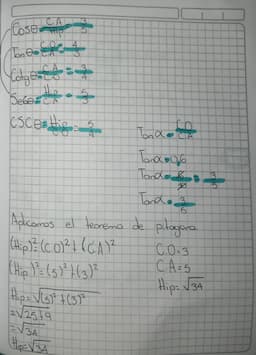 Cosθ = CA/Hip = 3/5
Tanθ = CO/CA = 4/3
Cotgθ = CA/CO = 3/4
Secθ = Hip/CA = 5/3
CSCθ = Hip/CO = 5/4
Tanα = CO/CA
Tanα = 0,6
Tanα = 6/10 = 3/5
Tanα = 3/5
Aplicamos el teorema de pitagora
(Hip)²(CO)²+(CA)²
(Hip)²=(5)²+(3)²
Hip=√(5)²+(3)²
=√25+9
=√34
Hip=√34
C.O=3
C.A=5
Hip=√34